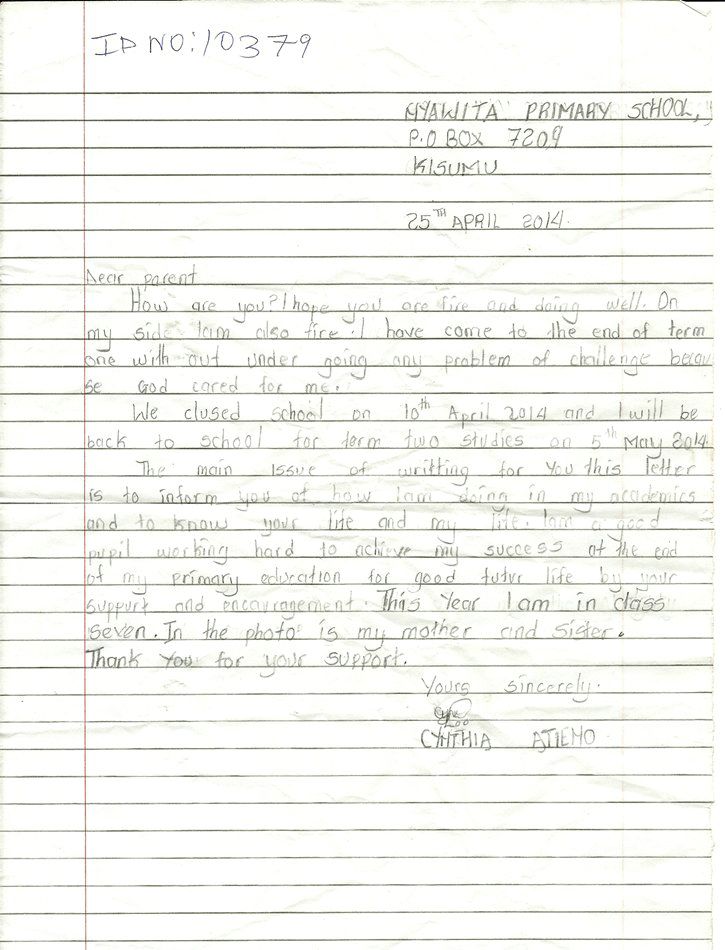 ID NO: 10379
NYAWITA PRIMARY SCHOOL,
P.O BOX 7209
KISUMU
25TH APRIL 2014.
Dear parent
How are you? I hope you are fire and doing well. On
my side Iam also fire. I have come to the end of term
one with out under going any problem of challenge becau
se God cared for me.
We clused school on 10th April 2014 and I will be
back to school for term two studies on 5th May 2014.
The main Issue of writting for You this letter
is to inform you of how Iam doing in my academics
and to know your life and my life. Iam a good
pupil working hard to achieve my success at the end
of my primary education for good futur life by your
support and encouragement. This Year Iam in class
seven. In the photo is my mother and sister.
Thank You for your support.
Yours sincerely.
CYNTHIA ATIENO